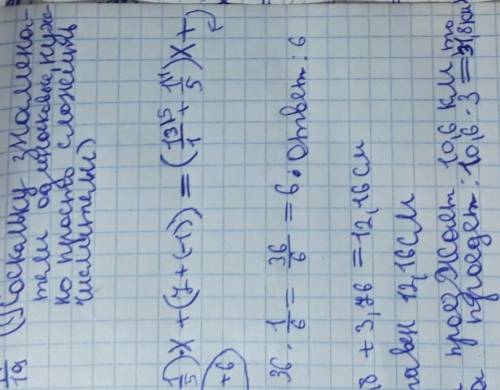 19 (Поскольку знамена-
тели одинаковые, нуж-
но просто сложить
числители)
1/5)·x + (7 + (-1)) = (13^15/1 + 1^11/5)x +
+6
36 · 1/6 = 36/6 = 6. Ответ: 6
8 + 3,76 = 12,16 см
равен 12,16 см
проезжает 10,6 км то
проедет: 10,6 · 3 = 31,8 км